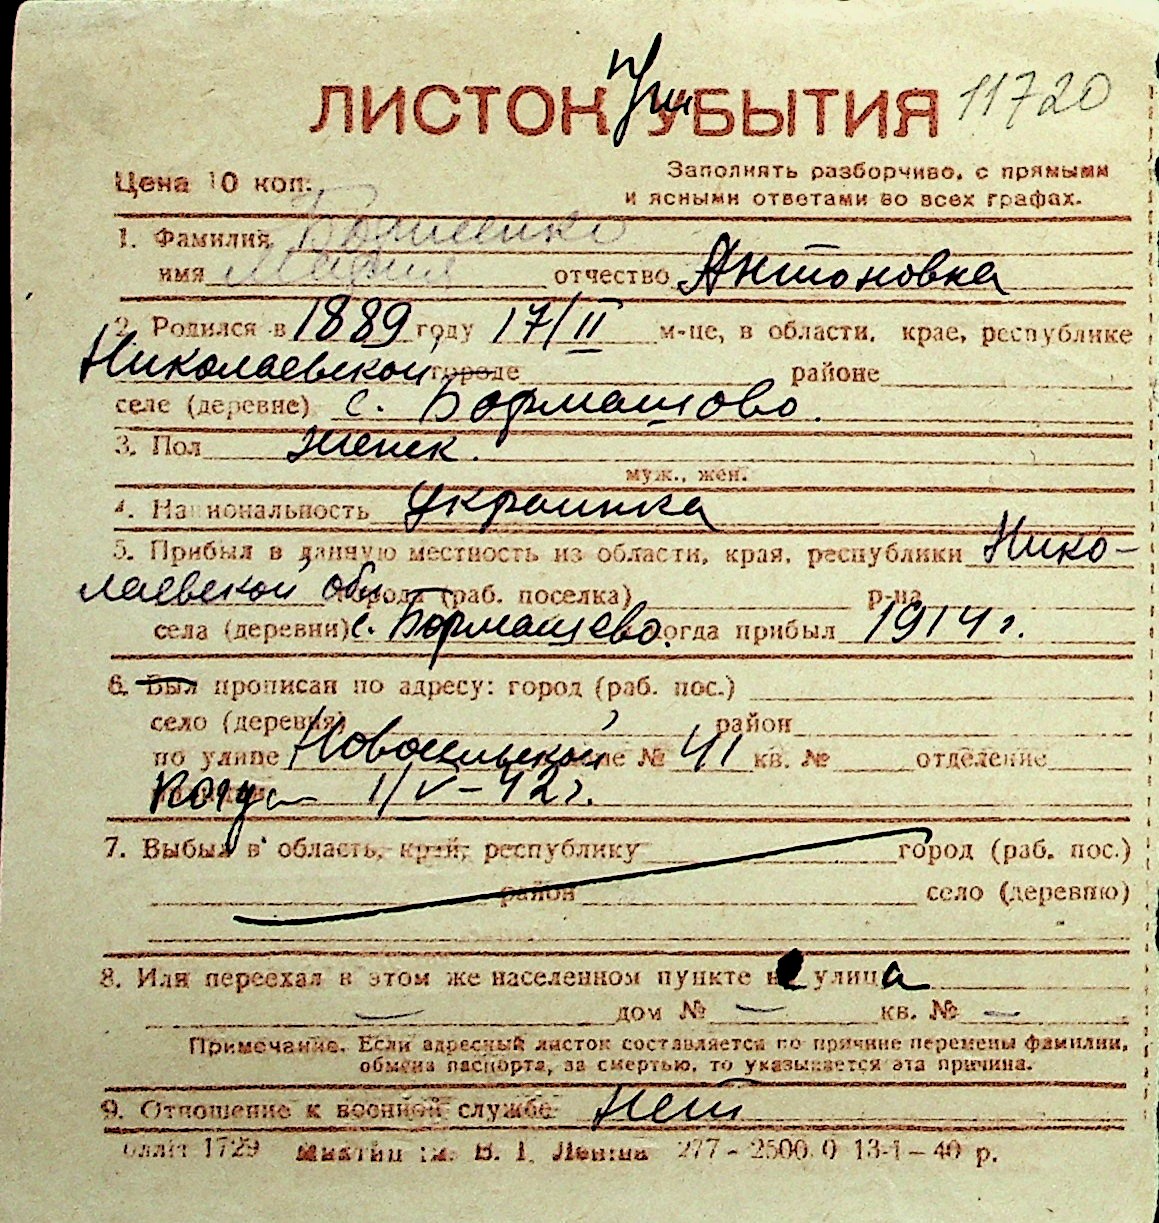 ЛИСТОК При УБЫТИЯ 11720
Цена 10 коп. Заполнять разборчиво, с прямыми
и ясными ответами во всех графах.
1. Фамилия
имя Мария отчество Антоновна
2. Родился в 1889 году 17/II м-це, в области, крае, республике
Николаевской городе районе
селе (деревне) с. Бормашово.
3. Пол женск.
муж., жен.
4. Национальность украинка
5. Прибыл в данную местность из области, края, республики Нико-
лаевской обл. города (раб. поселка) р-на
села (деревни) с. Бормашево. когда прибыл 1914 г.
6. Был прописан по адресу: город (раб. пос.)
село (деревня) район
по улице дом № 41 кв. № отделение
1/V-42 г.
7. Выбыл в область, край, республику город (раб. пос.)
район село (деревню)
8. Или переехал в этом же населенном пункте не улица
— дом № — кв. № —
Примечание. Если адресный листок составляется по причине перемены фамилии,
обмена паспорта, за смертью, то указывается эта причина.
9. Отношение к военной службе Нет
1729 В. І. Леніна 277-2500.0 13-1-40 р.